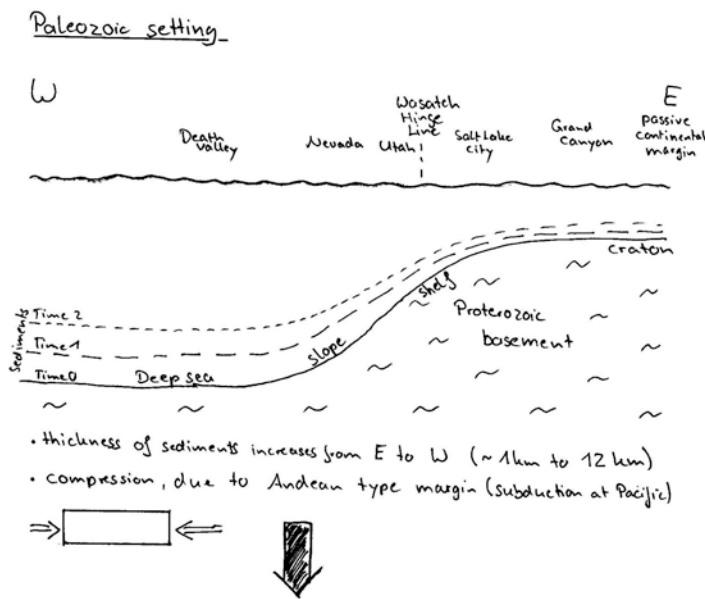 Paleozoic setting
W
E
Death Valley
Nevada
Utah
Wasatch Hinge Line
Salt Lake city
Grand Canyon
passive continental margin
craton
shelf
slope
Proterozoic basement
Sediments
Time 2
Time 1
Time 0
Deep sea
• thickness of sediments increases from E to W (~1km to 12 km)
• compression, due to Andean type margin (subduction at Pacific)